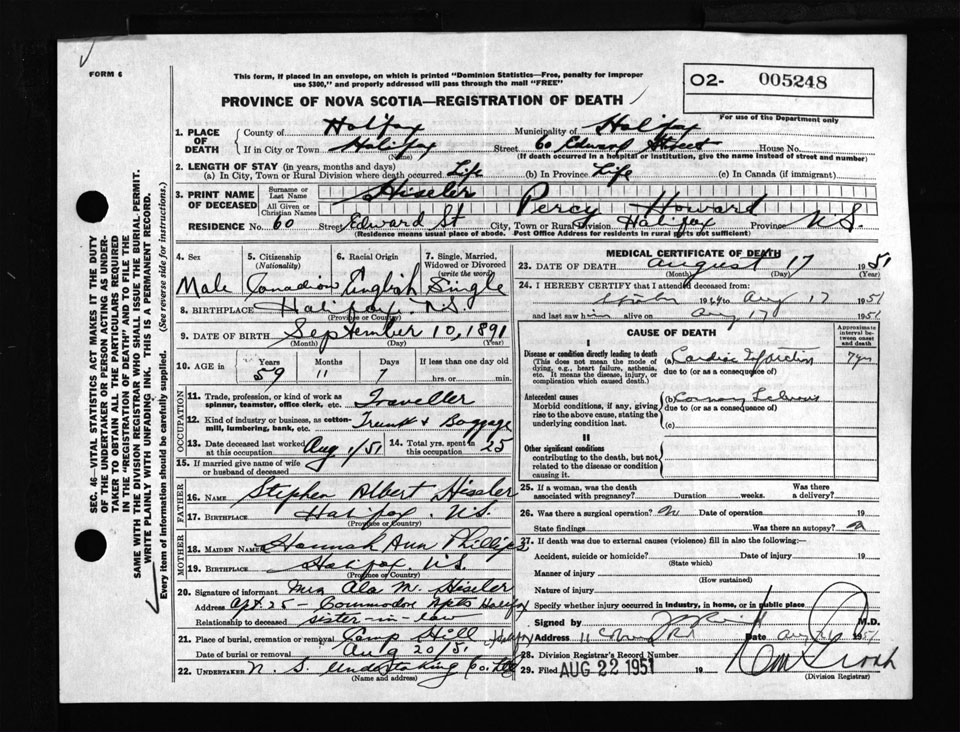 FORM 6
This form, if placed in an envelope, on which is printed "Dominion Statistics—Free, penalty for improper
use $300," and properly addressed will pass through the mail "FREE"
O2- 005248
PROVINCE OF NOVA SCOTIA—REGISTRATION OF DEATH
For use of the Department only
1. PLACE OF DEATH County of Halifax Municipality of Halifax
If in City or Town Halifax Street 60 Edward Street House No.
(Name) (If death occurred in a hospital or institution, give the name instead of street and number)
2. LENGTH OF STAY (in years, months and days)
(a) In City, Town or Rural Division where death occurred. Life (b) In Province Life (c) In Canada (if immigrant)
3. PRINT NAME OF DECEASED Surname or Last Name Hiseler
All Given or Christian Names Percy Howard
RESIDENCE No. 60 Street Edward St City, Town or Rural Division Halifax Province N.S.
(Residence means usual place of abode. Post Office Address for residents in rural parts not sufficient)
4. Sex 5. Citizenship (Nationality) 6. Racial Origin 7. Single, Married, Widowed or Divorced (write the word)
Male Canadian English Single
8. BIRTHPLACE Halifax. N.S.
(Province or Country)
9. DATE OF BIRTH September 10, 1891
(Month) (Day) (Year)
10. AGE in Years Months Days If less than one day old
59 11 7 hrs. or min.
OCCUPATION
11. Trade, profession, or kind of work as spinner, teamster, office clerk, etc. Traveller
12. Kind of industry or business, as cotton-mill, lumbering, bank, etc. Trunk & Baggage
13. Date deceased last worked at this occupation Aug 1/51 14. Total yrs. spent in this occupation 25
15. If married give name of wife or husband of deceased
FATHER
16. Name Stephen Albert Hiseler
17. Birthplace Halifax. N.S.
(Province or Country)
MOTHER
18. MAIDEN NAME Hannah Ann Phillips
19. BIRTHPLACE Halifax. N.S.
(Province or Country)
20. Signature of informant Mrs Ala M. Hiseler
Address Apt. 25 - Commodore Apts Halifax
Relationship to deceased sister-in-law
21. Place of burial, cremation or removal Camp Hill Halifax
Date of burial or removal Aug 20/51
22. UNDERTAKER N. S. Undertaking Co. Ltd
(Name and address)
MEDICAL CERTIFICATE OF DEATH
23. DATE OF DEATH August 17 1951
(Month) (Day) (Year)
24. I HEREBY CERTIFY that I attended deceased from:
to Aug 17 1951
and last saw him alive on Aug 17 1951
CAUSE OF DEATH
Approximate interval between onset and death
I
Disease or condition directly leading to death
(This does not mean the mode of dying, e.g., heart failure, asthenia, etc. It means the disease, injury, or complication which caused death.)
(a) Cardiac 7 yrs
due to (or as a consequence of)
Antecedent causes
Morbid conditions, if any, giving rise to the above cause, stating the underlying condition last.
(b) Coronary
due to (or as a consequence of)
(c)
II
Other significant conditions
contributing to the death, but not related to the disease or condition causing it.
25. If a woman, was the death associated with pregnancy? Duration weeks. Was there a delivery?
26. Was there a surgical operation? Date of operation 19
State findings Was there an autopsy?
27. If death was due to external causes (violence) fill in also the following:—
Accident, suicide or homicide? Date of injury 19
(State which)
Manner of injury
(How sustained)
Nature of injury
Specify whether injury occurred in Industry, in home, or in public place
Signed by M.D.
Address Date Aug 1951
28. Division Registrar's Record Number
29. Filed AUG 22 1951 19
(Division Registrar)
SEC. 46—VITAL STATISTICS ACT MAKES IT THE DUTY
OF THE UNDERTAKER OR PERSON ACTING AS UNDER-
TAKER TO OBTAIN ALL THE PARTICULARS REQUIRED
IN THE "REGISTRATION OF DEATH" AND TO FILE THE
SAME WITH THE DIVISION REGISTRAR WHO SHALL ISSUE THE BURIAL PERMIT.
WRITE PLAINLY WITH UNFADING INK. THIS IS A PERMANENT RECORD.
Every item of information should be carefully supplied. (See reverse side for instructions.)